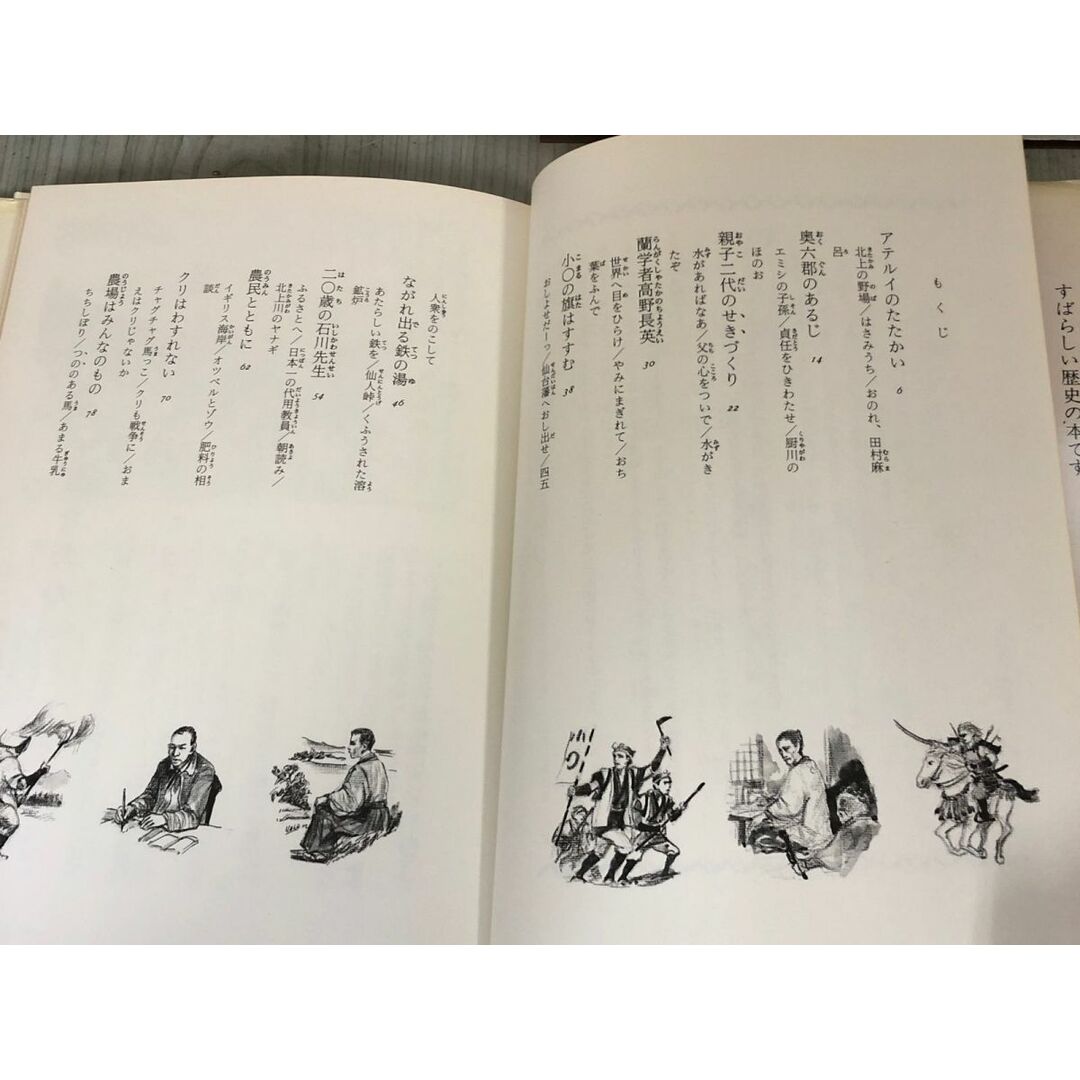 すばらしい歴史の本です
もくじ
アテルイのたたかい 6
北上の野場／はさみうち／おのれ、田村麻
呂
奥六郡のあるじ 14
エミシの子孫／貞任をひきわたせ／厨川の
ほのお
親子二代のせきづくり 22
水があればなあ／父の心をついで／水がき
たぞ
蘭学者高野長英 30
世界へ目をひらけ／やみにまぎれて／おち
葉をふんで
小〇の旗はすすむ 38
おしよせだーっ／仙台藩へおし出せ／四五
人衆をのこして
ながれ出る鉄の湯 46
あたらしい鉄を／仙人峠／くふうされた溶
鉱炉
二〇歳の石川先生 54
ふるさとへ／日本一の代用教員／朝読み／
北上川のヤナギ
農民とともに 62
イギリス海岸／オツベルとゾウ／肥料の相
談
クリはわすれない 70
チャグチャグ馬っこ／クリも戦争に／おま
えはクリじゃないか
農場はみんなのもの 78
ちちしぼり／つのある馬／あまる牛乳